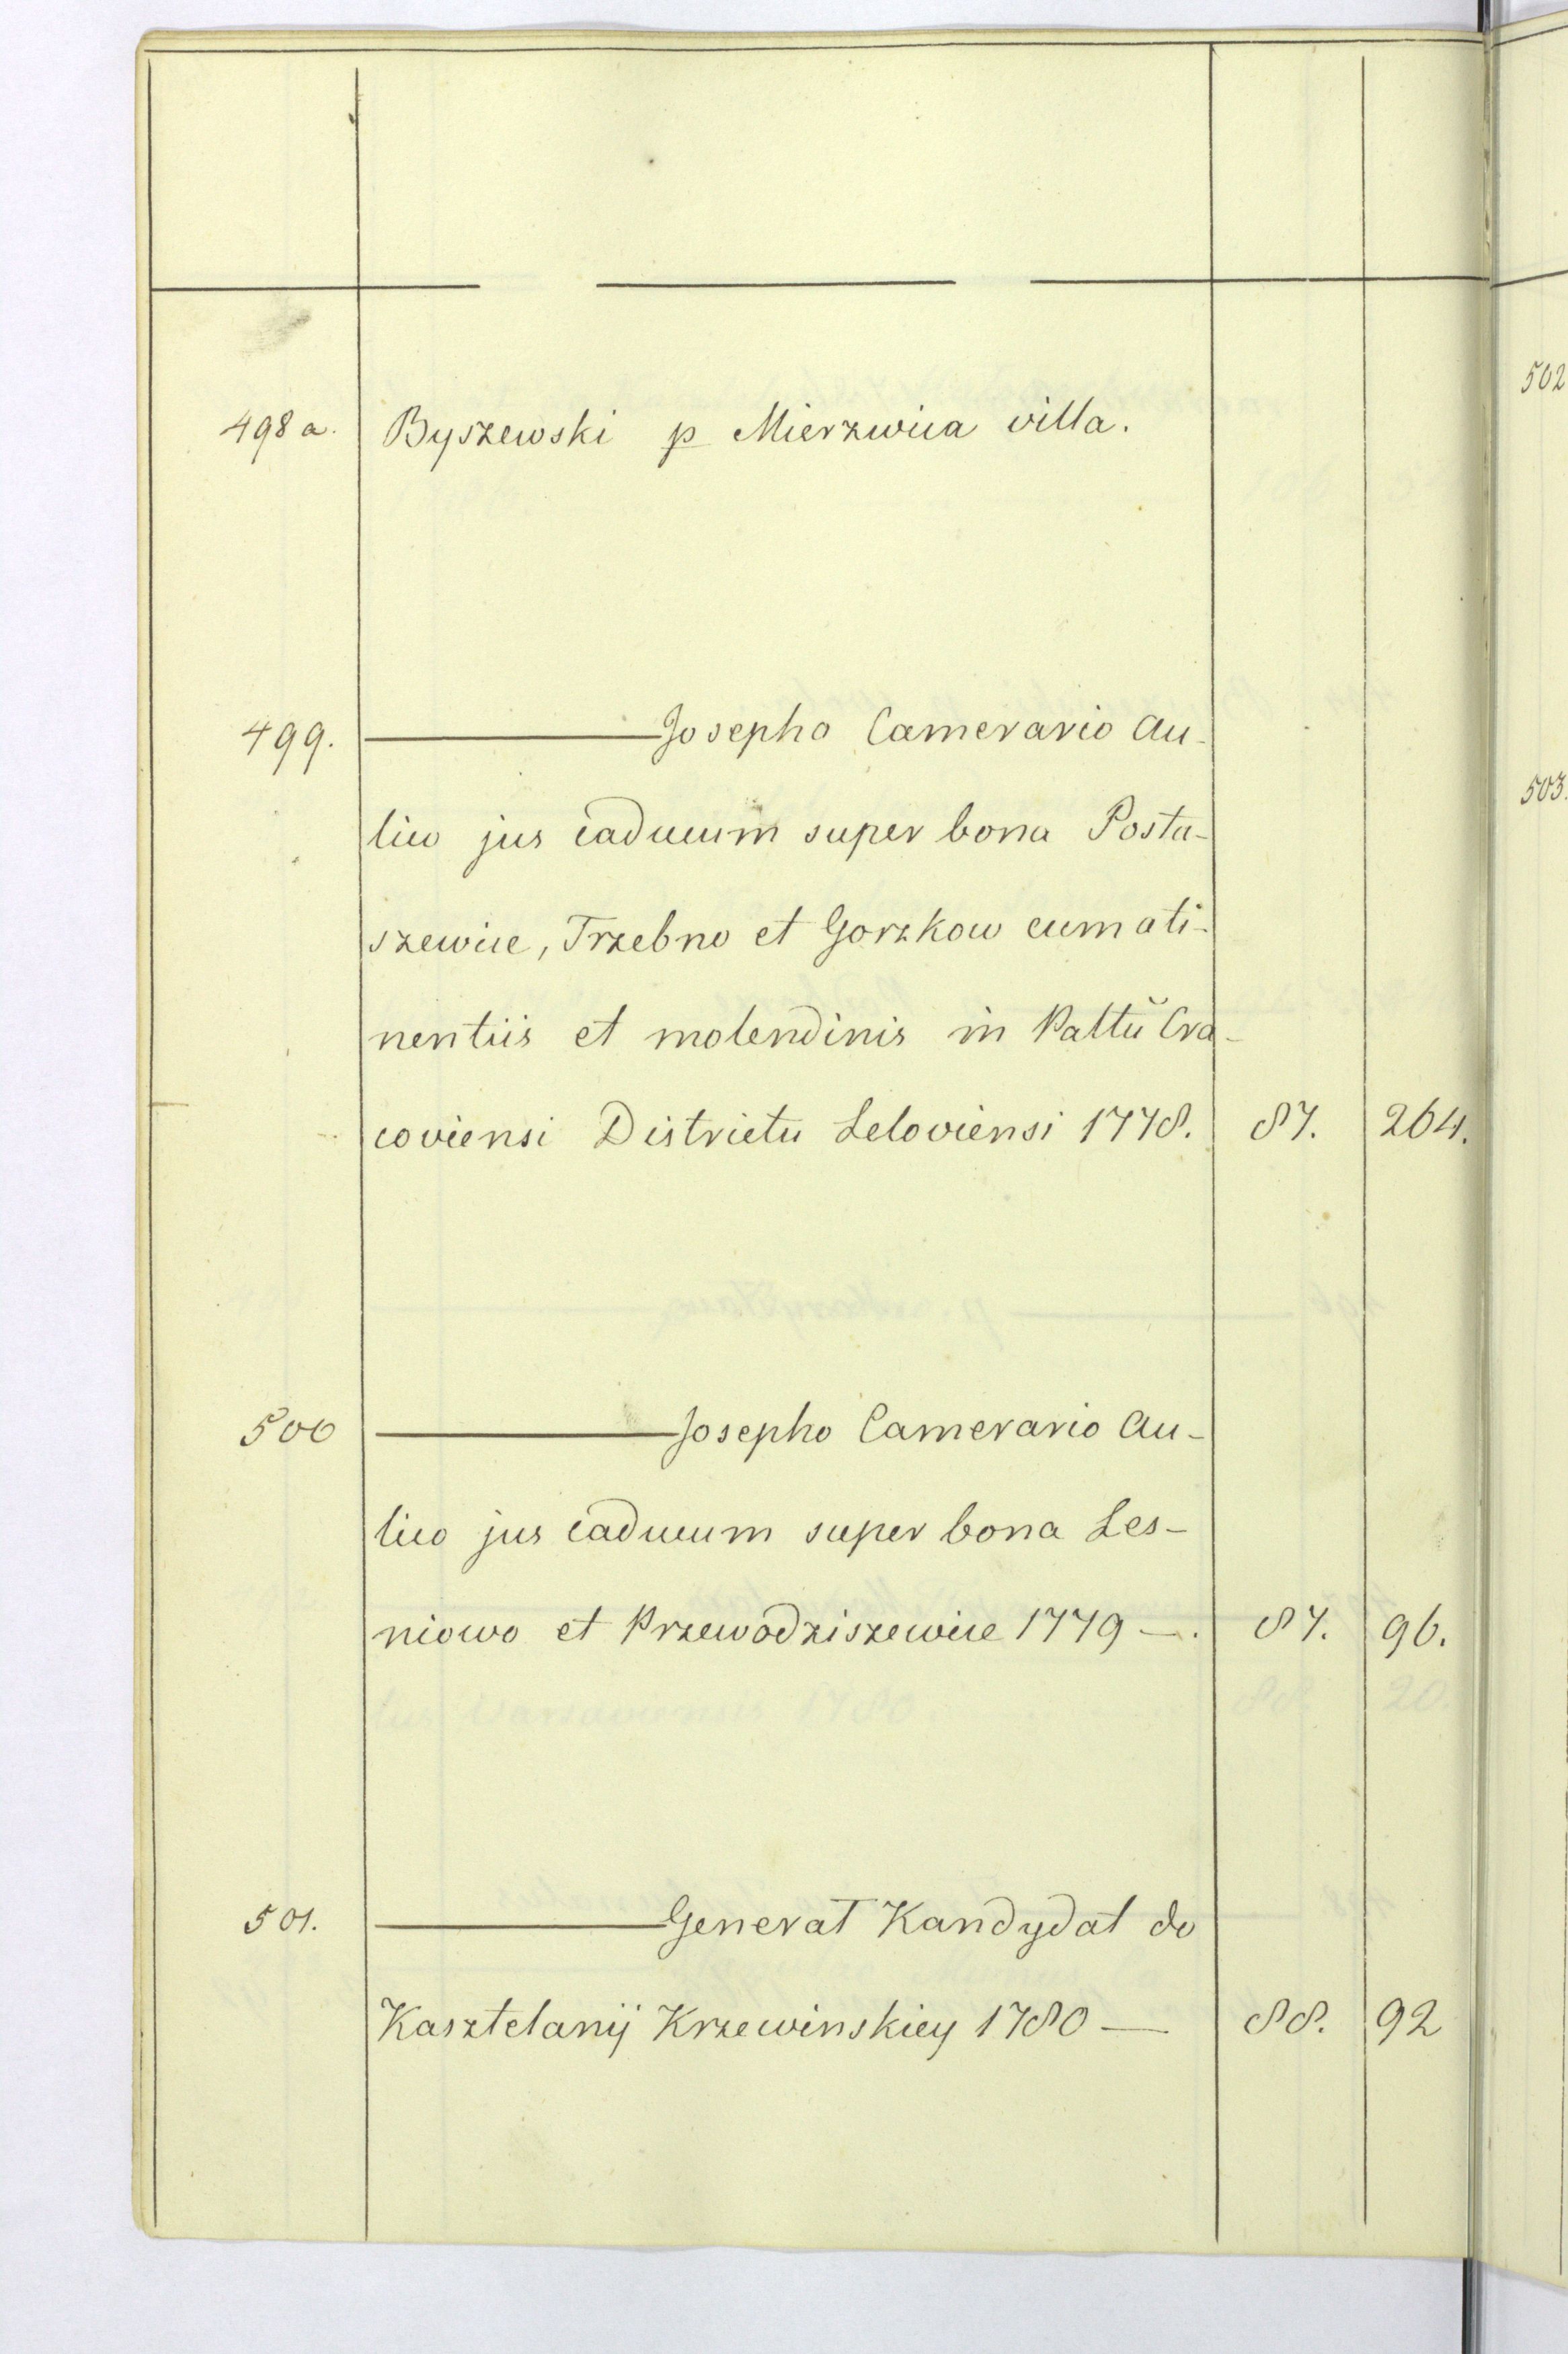 498 a. Byszewski p Mierzwica villa.
499. ——— Josepho Camerario Au-
lico jus caducum super bona Posta-
szewice, Trzebno et Gorzkow cum ati-
nentiis et molendinis in Palttŭ Cra-
coviensi Districtu Leloviensi 1778. 87. 264.
500 ——— Josepho Camerario Au-
lico jus caducum super bona Les-
niowo et Przewodziszewice 1779 —. 87. 96.
501. ——— Generał Kandydat do
Kasztelanij Krzewinskiey 1780 — 88. 92
502
503.